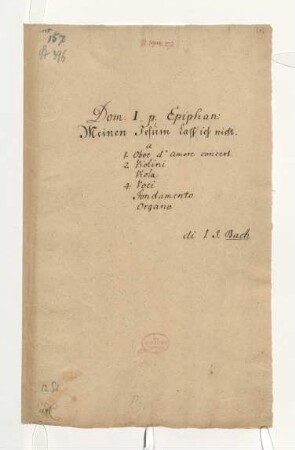 Dom. I. p. Epiphan:
Meinen Jesum laß ich nicht.
a
1. Oboe d'amore concert.
2. Violini
Viola
4. Voci
Fondamento
Organo
di I. S. Bach